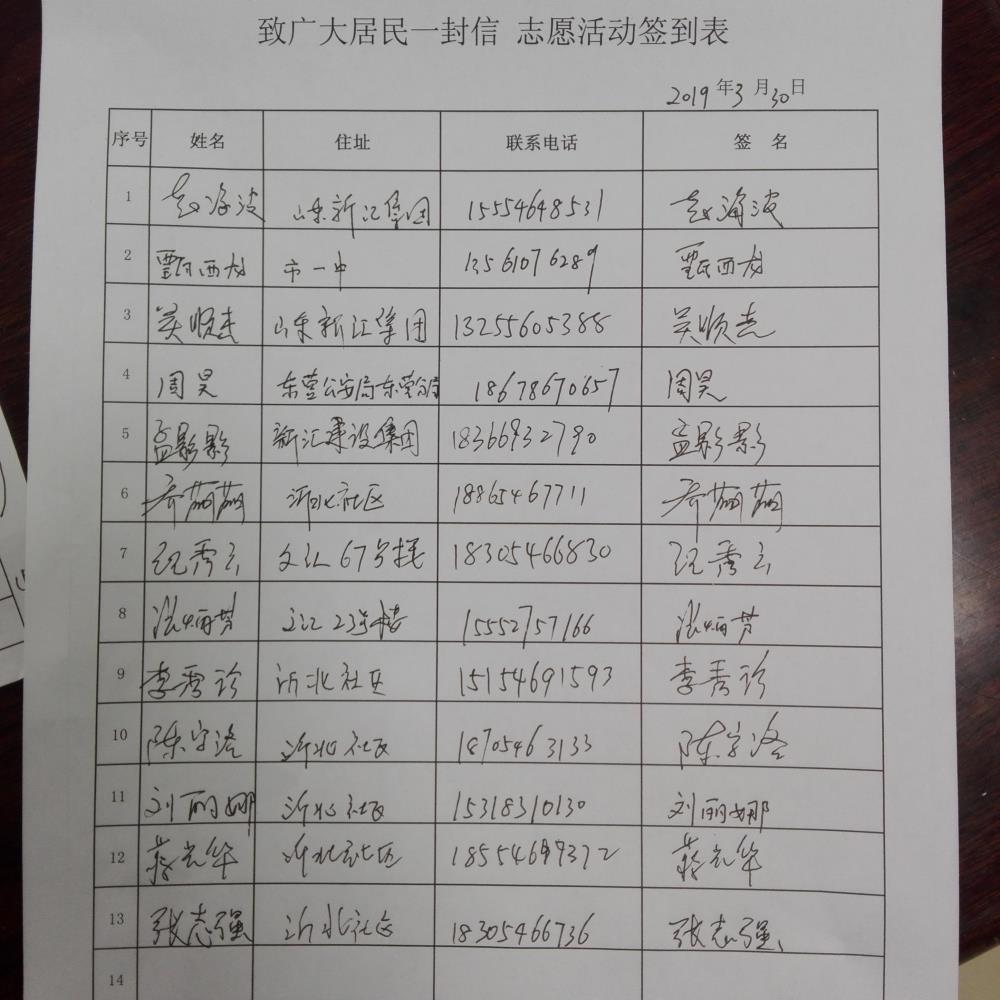 致广大居民一封信 志愿活动签到表
2019年3月30日
序号 姓名 住址 联系电话 签 名
1 赵海波 山东新汇集团 15554648531 赵海波
2 甄西龙 市一中 13561076289 甄西龙
3 吴顺志 山东新汇集团 13255605388 吴顺志
4 周昊 东营公安局东营分局 18678670657 周昊
5 孟影影 新汇建设集团 18366932790 孟影影
6 乔萌萌 沂北社区 18865467711 乔萌萌
7 秀云 文汇67号楼 18305466830 秀云
8 张炳芳 文汇23号楼 15552757166 张炳芳
9 李秀珍 沂北社区 15154691593 李秀珍
10 陈字洛 沂北社区 18705463133 陈字洛
11 刘丽娜 沂北社区 15318310130 刘丽娜
12 蒋光华 沂北社区 18554699372 蒋光华
13 张志强 沂北社区 18305466736 张志强
14